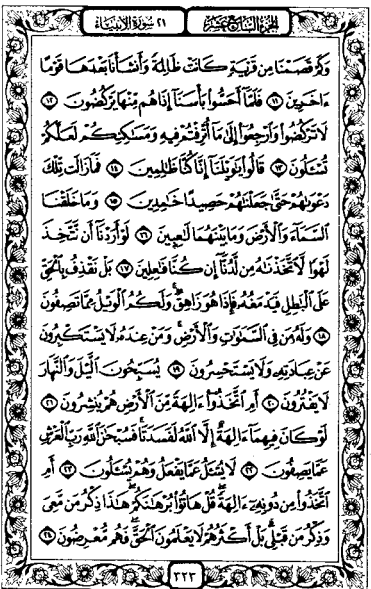 الجزء السابع عشر
٢١ سورة الأنبياء
وَكَمْ قَصَمْنَا مِن قَرْيَةٍ كَانَتْ ظَالِمَةً وَأَنشَأْنَا بَعْدَهَا قَوْمًا
ءَاخَرِينَ ١١ فَلَمَّا أَحَسُّوا بَأْسَنَا إِذَا هُم مِّنْهَا يَرْكُضُونَ ١٢
لَا تَرْكُضُوا وَارْجِعُوا إِلَى مَا أُتْرِفْتُمْ فِيهِ وَمَسَاكِنِكُمْ لَعَلَّكُمْ
تُسْـَٔلُونَ ١٣ قَالُوا يَٰوَيْلَنَا إِنَّا كُنَّا ظَٰلِمِينَ ١٤ فَمَا زَالَت تِّلْكَ
دَعْوَىٰهُمْ حَتَّىٰ جَعَلْنَٰهُمْ حَصِيدًا خَٰمِدِينَ ١٥ وَمَا خَلَقْنَا
السَّمَآءَ وَالْأَرْضَ وَمَا بَيْنَهُمَا لَٰعِبِينَ ١٦ لَوْ أَرَدْنَا أَن نَّتَّخِذَ
لَهْوًا لَّاتَّخَذْنَٰهُ مِن لَّدُنَّا إِن كُنَّا فَٰعِلِينَ ١٧ بَلْ نَقْذِفُ بِالْحَقِّ
عَلَى الْبَٰطِلِ فَيَدْمَغُهُ فَإِذَا هُوَ زَاهِقٌ وَلَكُمُ الْوَيْلُ مِمَّا تَصِفُونَ
١٨ وَلَهُ مَن فِي السَّمَٰوَٰتِ وَالْأَرْضِ وَمَنْ عِندَهُ لَا يَسْتَكْبِرُونَ
عَنْ عِبَادَتِهِ وَلَا يَسْتَحْسِرُونَ ١٩ يُسَبِّحُونَ الَّيْلَ وَالنَّهَارَ
لَا يَفْتُرُونَ ٢٠ أَمِ اتَّخَذُوا ءَالِهَةً مِّنَ الْأَرْضِ هُمْ يُنشِرُونَ ٢١
لَوْ كَانَ فِيهِمَا ءَالِهَةٌ إِلَّا اللَّهُ لَفَسَدَتَا فَسُبْحَٰنَ اللَّهِ رَبِّ الْعَرْشِ
عَمَّا يَصِفُونَ ٢٢ لَا يُسْـَٔلُ عَمَّا يَفْعَلُ وَهُمْ يُسْـَٔلُونَ ٢٣ أَمِ
اتَّخَذُوا مِن دُونِهِ ءَالِهَةً قُلْ هَاتُوا بُرْهَٰنَكُمْ هَٰذَا ذِكْرُ مَن مَّعِيَ
وَذِكْرُ مَن قَبْلِي بَلْ أَكْثَرُهُمْ لَا يَعْلَمُونَ الْحَقَّ فَهُم مُّعْرِضُونَ ٢٤
٣٢٣